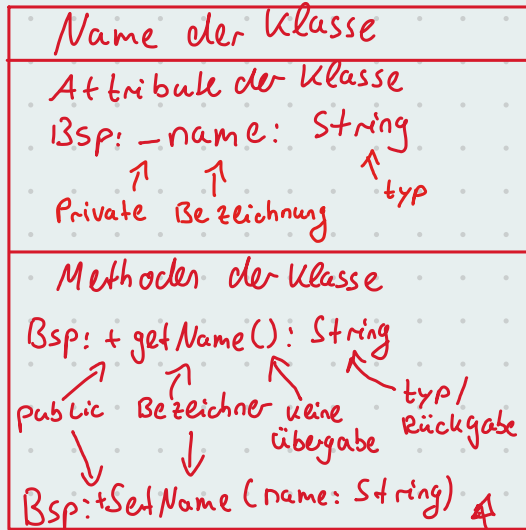 Name der Klasse
Attribute der Klasse
Bsp: - name: String
Private Bezeichnung typ
Methoden der Klasse
Bsp: + getName(): String
public Bezeichner keine Übergabe typ/ Rückgabe
Bsp: +SetName (name: String)